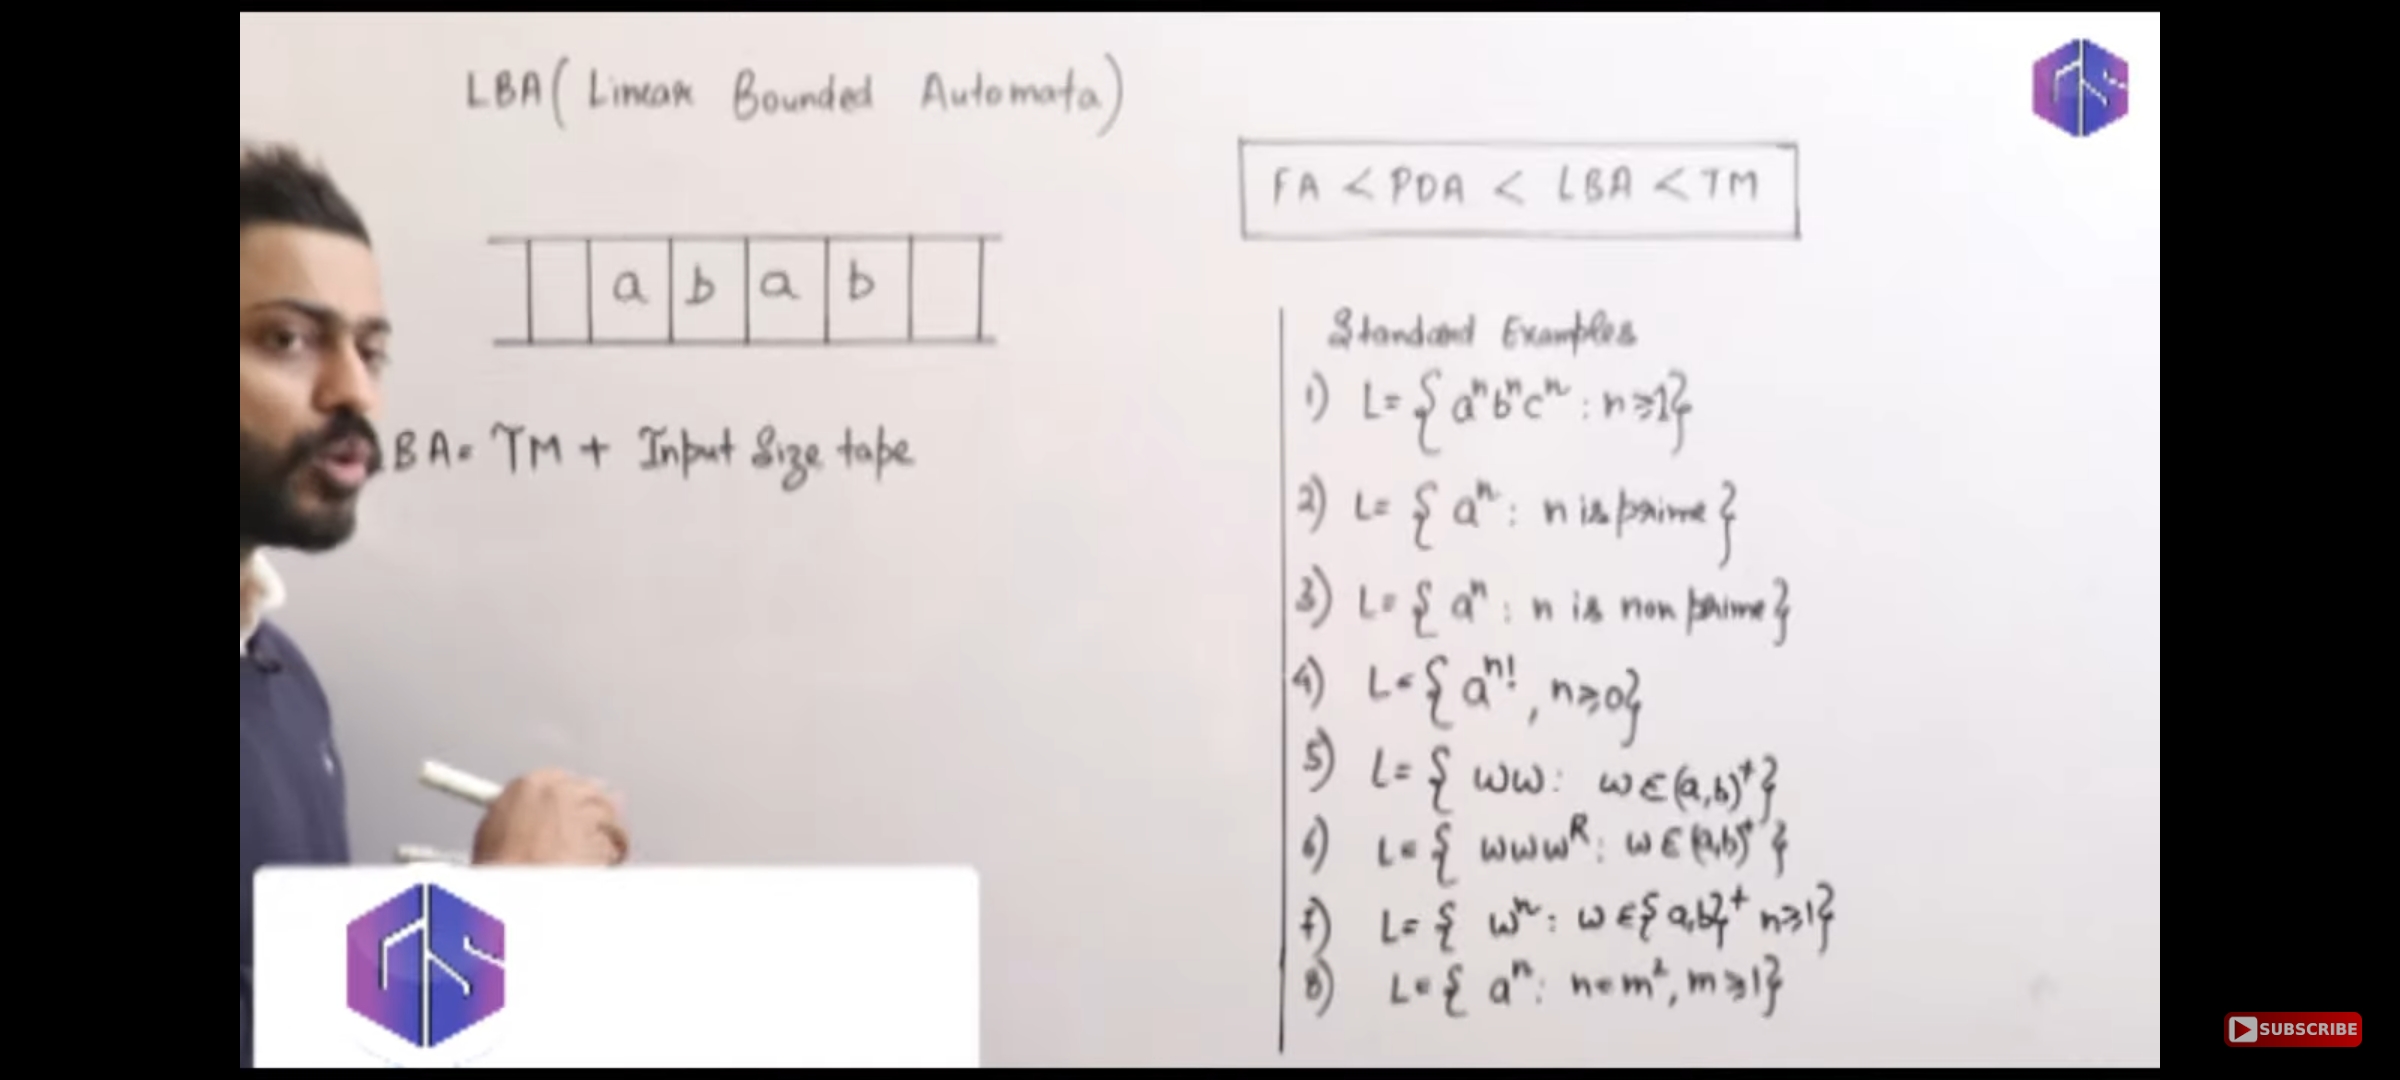 LBA( Linear Bounded Automata)
FA < PDA < LBA < TM
a b a b
BA= TM + Input Size tape
Standard Examples
1) L= { aⁿbⁿcⁿ : n≥1}
2) L= { aⁿ : n is prime}
3) L= { aⁿ : n is non prime}
4) L= { aⁿ!, n≥0}
5) L= { ww : w∈(a,b)⁺}
6) L= { wwwᴿ : w∈(a,b)⁺}
7) L= { wⁿ : w∈{a,b}⁺ n≥1}
8) L= { aⁿ : n=m², m≥1}
SUBSCRIBE